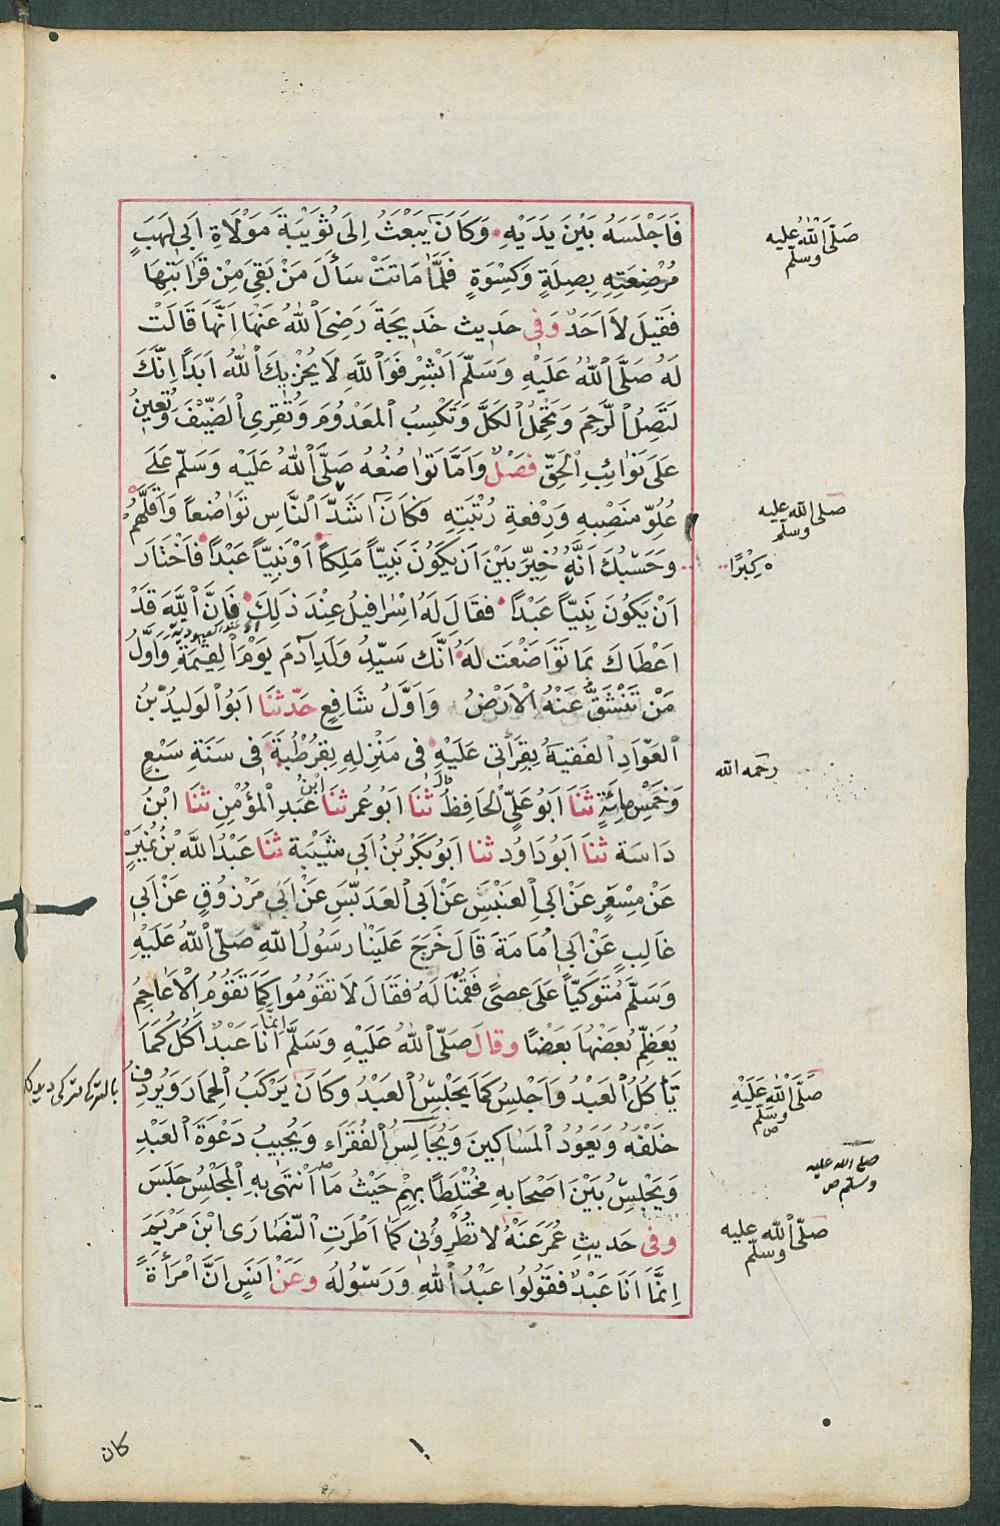 فَاَجْلَسَهُ بَيْنَ يَدَيْهِ وَكَانَ يَبْعَثُ اِلَى ثُوَيْبَةَ مَوْلَاةِ اَبِي لَهَبٍ
صَلَّى اللّٰهُ عليه وسلّم
مُرْضِعَتِهِ بِصِلَةٍ وَكِسْوَةٍ فَلَمَّا مَاتَتْ سَأَلَ مَنْ بَقِيَ مِنْ قَرَابَتِهَا
فَقِيلَ لَا اَحَدٌ وَفِي حَدِيث خَدِيجَةَ رَضِيَ اللّٰهُ عَنْهَا اَنَّهَا قَالَتْ
لَهُ صَلَّى اللّٰهُ عَلَيْهِ وَسَلَّمَ اَبْشِرْ فَوَاللّٰهِ لَا يُخْزِيكَ اللّٰهُ اَبَدًا اِنَّكَ
لَتَصِلُ الرَّحِمَ وَتَحْمِلُ الكَلَّ وَتَكْسِبُ المَعْدُومَ وَتُقْرِي الضَّيْفَ وَتُعِينُ
عَلَى نَوَائِبِ الْحَقِّ فَصْلٌ وَاَمَّا تَوَاضُعُه صَلَّى اللّٰهُ عَلَيْه وَسَلَّم عَلَى
عُلُوِّ مَنْصِبِهِ وَرِفْعَةِ رُتْبَتِهِ فَكَانَ اَشَدَّ النَّاسِ تَوَاضُعاً وَاَقَلَّهُمْ
صلى اللّه عليه وسلّم
كِبْرًا
وحَسْبُكَ اَنَّهُ خُيِّرَ بَيْنَ اَنْ يَكُونَ نَبِيّاً مَلِكاً اَوْ نَبِيّاً عَبْداً فَاخْتَارَ
اَنْ يَكُونَ نَبِيّاً عَبْداً فَقَالَ لَهُ اسْرَافِيلُ عِنْدَ ذٰلِكَ فَاِنَّ اللّٰهَ قَدْ
اَعْطَاكَ بِمَا تَوَاضَعْتَ لَهُ اَنَّكَ سَيِّدُ وَلَدِ اٰدَمَ يَوْمَ الْقِيٰمَةِ وَاَوَّلُ
مَنْ تَنْشَقُّ عَنْهُ الْاَرْضُ وَاَوَّلُ شَافِعٍ حَدّثَنَا اَبُوالْوَلِيدِ بْنُ
العَوَّادِ الفَقِيهُ بِقِرَأَتِي عَلَيْهِ فِي مَنْزِلِهِ بِقُرْطُبَةَ فِي سَنَةِ سَبْعٍ
رحمه اللّه
وَخَمْسِ مِائَةٍ ثَنَا اَبُو عَلِيّ الْحَافِظُ ثَنَا اَبُو عُمر ثَنَا ابْنُ عَبْدِ الْمُؤْمِنِ ثَنَا ابْنُ
دَاسَة ثَنَا اَبُو دَاوُد ثَنَا اَبُو بَكْرِ بْنُ اَبِي شَيْبَة ثَنَا عَبْدُ اللّٰهِ بْنُ نُمَيْرٍ
عَنْ مِسْعَرٍ عَنْ اَبِي العَنْبَسِ عَنْ اَبِي العَدَبَّسِ عَنْ اَبِي مَرْزُوقٍ عَنْ اَبِي
غَالِبٍ عَنْ اَبِي اُمَامَةَ قَالَ خَرَجَ عَلَيْنَا رَسُولُ اللّٰهِ صَلَّى اللّٰهُ عَلَيْهِ
وَسَلَّم مُتَوَكِّيًّا عَلَى عصىً فَقُمْنَا لَهُ فَقَالَ لَا تَقُومُوا كَمَا تَقُومُ الْاَعَاجِمُ
يُعَظِّمُ بَعْضُهَا بَعْضًا وقَالَ صَلَّى اللّٰهُ عَلَيْهِ وَسَلَّم اِنَّمَا اَنَا عَبْدٌ اٰكُلُ كَمَا
يَأْكُلُ العَبْدُ وَاَجْلِسُ كَمَا يَجْلِسُ العَبْدُ وَكَانَ يَرْكَبُ الْحِمَارَ وَيُرْدِفُ
صَلَّى اللّٰهُ عَلَيْهِ وسلّم ص
خَلْفَهُ وَيَعُودُ الْمَسَاكِينَ وَيُجَالِسُ الفُقَرَاء وَيُجِيبُ دَعْوَةَ العَبْدِ
صلى الله عليه وسلم ص
وَيَجْلِسُ بَيْنَ اَصْحَابِهِ مُخْتَلِطًا بِهِمْ حَيْثُ مَا انْتَهَى بِهِ الْمَجْلِسُ جَلَسَ
وفى حَدِيثِ عُمَرَ عَنْهُ لا تُطْرُونِي كَمَا اَطْرَتِ النَّصَارَى ابْنَ مَرْيَمَ
صَلَّى اللّٰه عليه وسلّم
اِنَّمَا اَنَا عَبْدٌ فَقُولُوا عَبْدُ اللّٰهِ وَرَسُولُهُ وعَنْ اَنَسٍ اَنَّ امْرَأَةً
كان